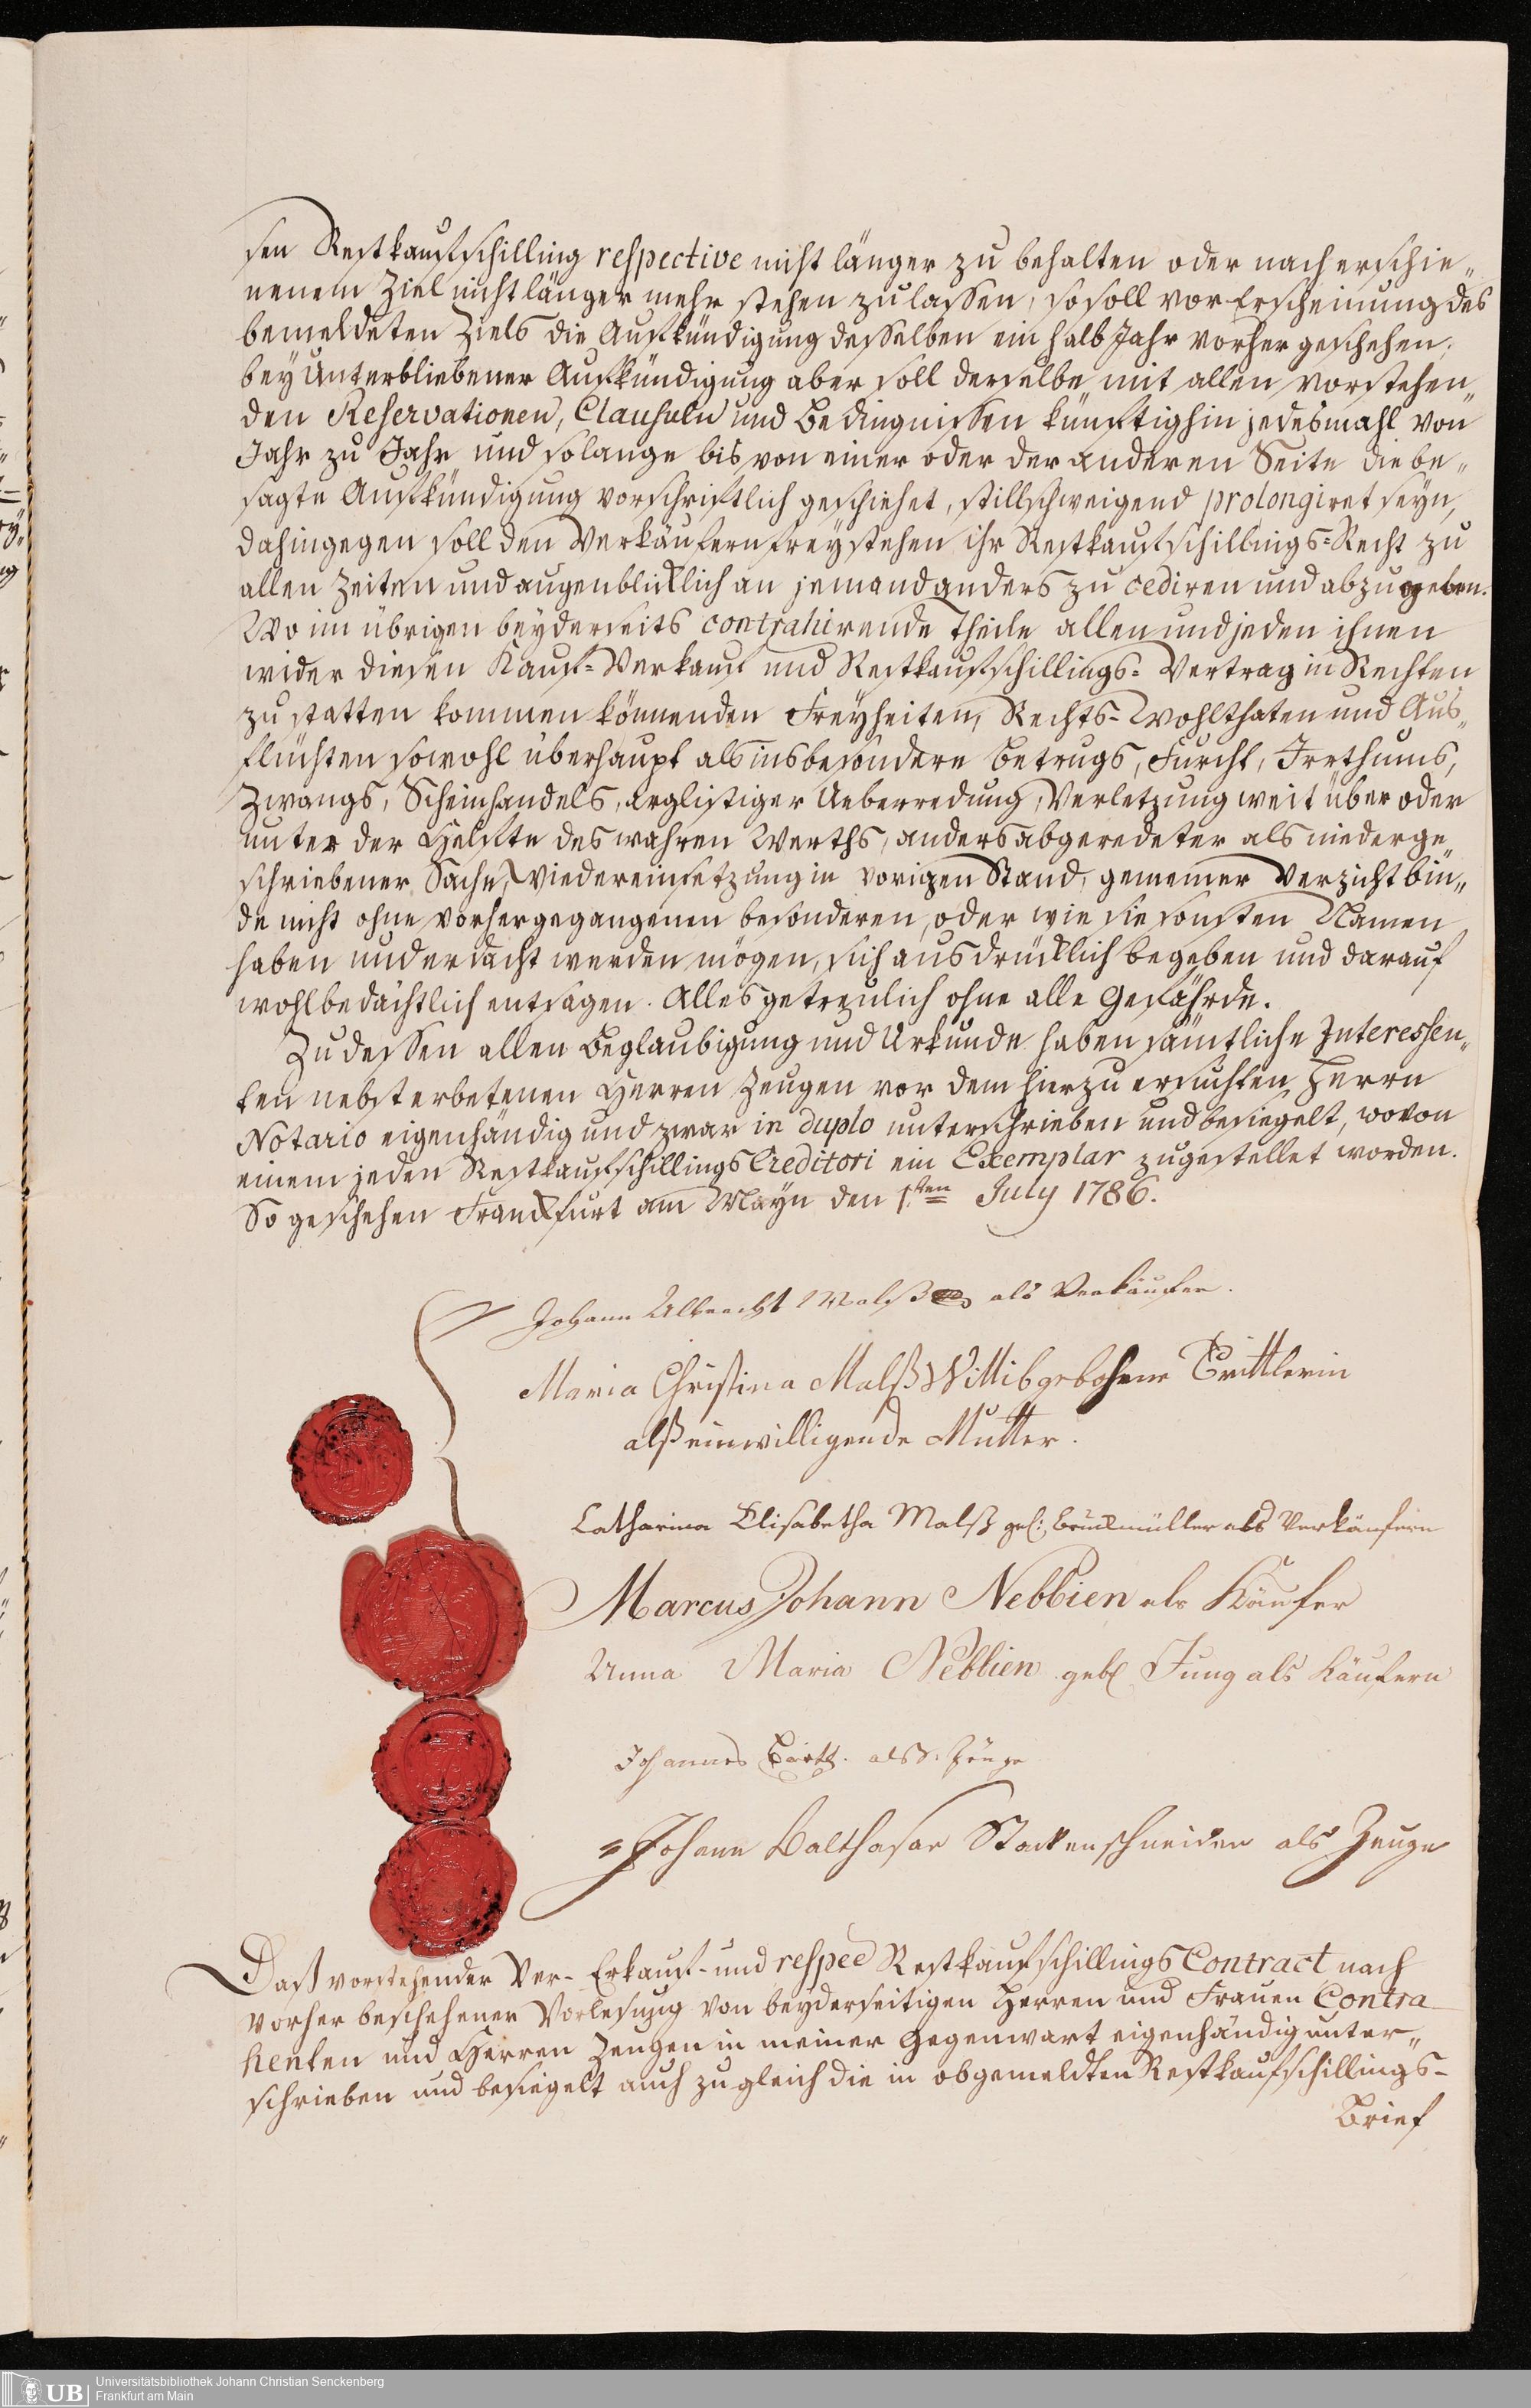 sen Restkaufschilling respective nicht länger zu behalten oder nach erschie„
nenem Ziel nicht länger mehr stehen zu lassen, so soll vor Erscheinung des
bemeldeten Ziels die Aufkündigung desselben ein halb Jahr vorher geschehen;
bey Unterbliebener Aufkündigung aber soll derselbe mit allen vorstehen„
den Reservationen, Clausuln und Bedingnissen künftighin jedesmahl von
Jahr zu Jahr und solange bis von einer oder der anderen Seite die be„
sagte Aufkündigung vorschriftlich geschiehet, stillschweigend prolongiret seyn,
dahingegen soll den Verkäufern freystehen ihr Restkaufschillings=Recht zu
allen Zeiten und augenblicklich an jemand anders zu cediren und abzugeben.
Wo im übrigen beyderseits contrahirende Theile allen und jeden ihnen
wider diesen Kauf=Verkauf und Restkaufschillings=Vertrag in Rechten
zu statten kommen könnenden Freyheiten, Rechts=Wohlthaten und Aus„
flüchten sowohl überhaupt als insbesondere Betrugs, Furcht, Irrthums,
Zwangs, Scheinhandels, arglistiger Ueberredung, Verletzung weit über oder
unter der Helfte des wahren Werths, anders abgeredeter als niederge„
schriebener Sache, Wiedereinsetzung in vorigen Stand, gemeiner Verzicht bin„
de nicht ohne vorhergegangenen besonderen, oder wie sie sonsten Namen
haben und erdacht werden mögen, sich ausdrücklich begeben und darauf
wohlbedächtlich entsagen. Alles getreulich ohne alle Gefährde.
Zu dessen allen Beglaubigung und Urkunde haben sämtliche Interessen„
ten nebst erbetenen Herren Zeugen vor dem hierzu ersuchten Herrn
Notario eigenhändig und zwar in duplo unterschrieben und besiegelt, wovon
einem jeden Restkaufschillings Creditori ein Exemplar zugestellet worden.
So geschehen Franckfurt am Mayn den 1.ten July 1786.
Johann Albrecht Malß als Verkäufer.
Maria Christina Malß Wittib gebohrne Trittlerin
alß einwilligende Mutter.
Catharina Elisabetha Malß geb: Bruckmüller als Verkäufern
Marcus Johann Nebbien als Käufer
Anna Maria Nebbien geb. Jung als Käufern
Johannes als Zeuge
Johann Balthasar Stockenschneider als Zeuge
Daß vorstehender Ver- Erkauf- und respec Restkaufschillings Contract nach
vorher beschehener Vorlesung von beyderseitigen Herren und Frauen Contra-
henten und Herren Zeugen in meiner Gegenwart eigenhändig unter„
schrieben und besiegelt auch zugleich die in obgemeldten Restkaufschillings-
Brief
UB Universitätsbibliothek Johann Christian Senckenberg
Frankfurt am Main